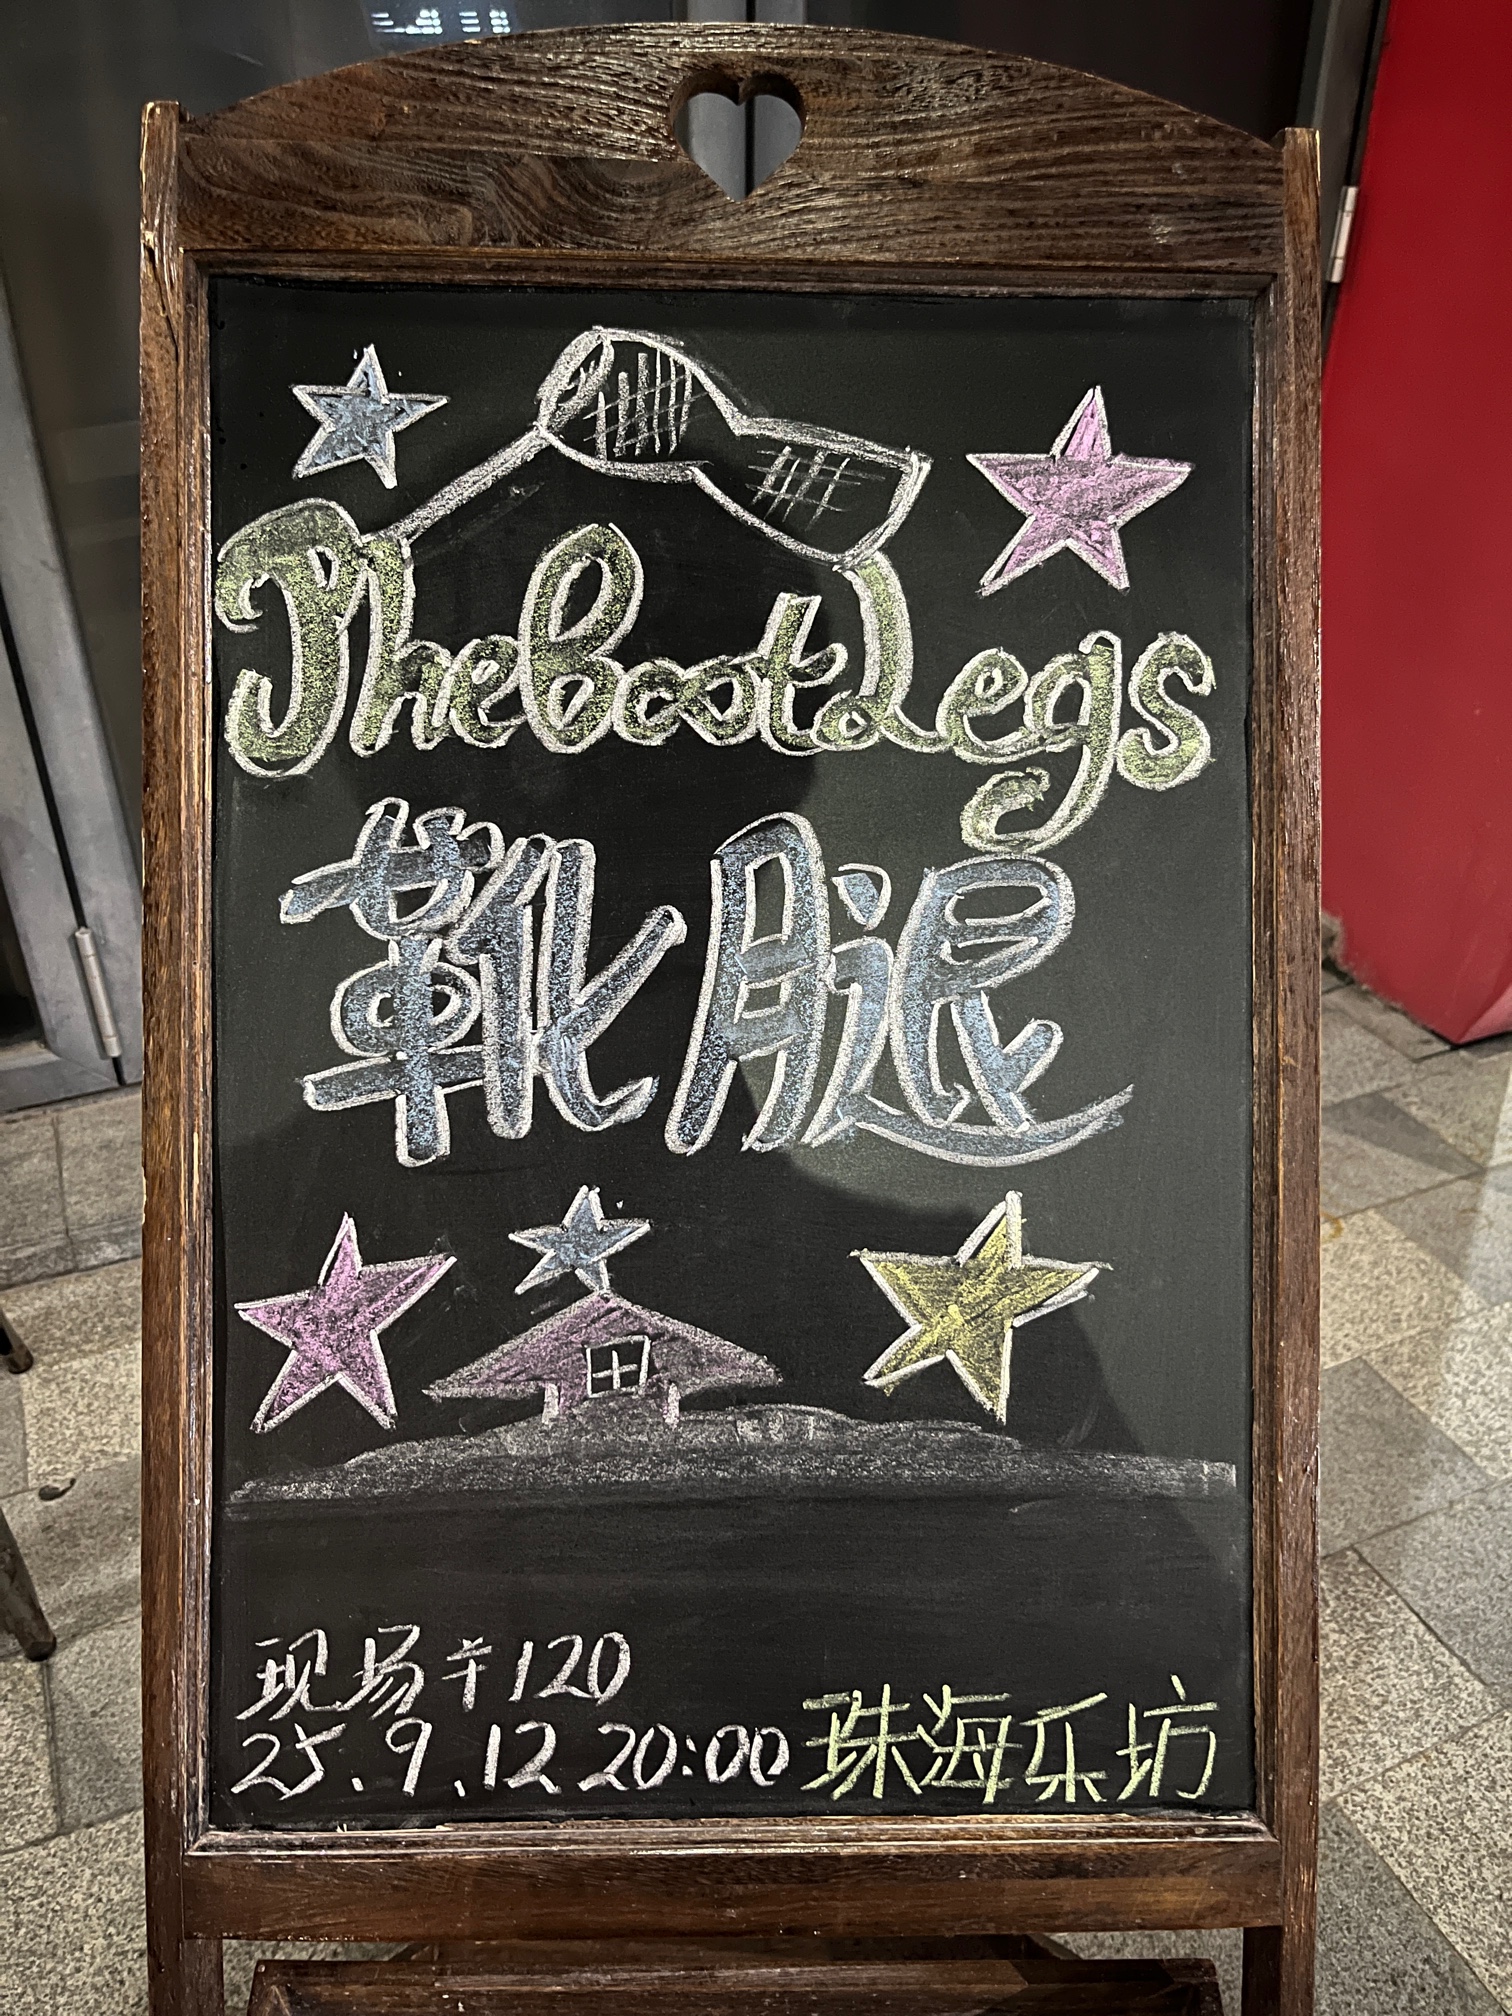 ThebootLegs
靴腿
现场￥120
25.9.12 20:00 珠海乐坊